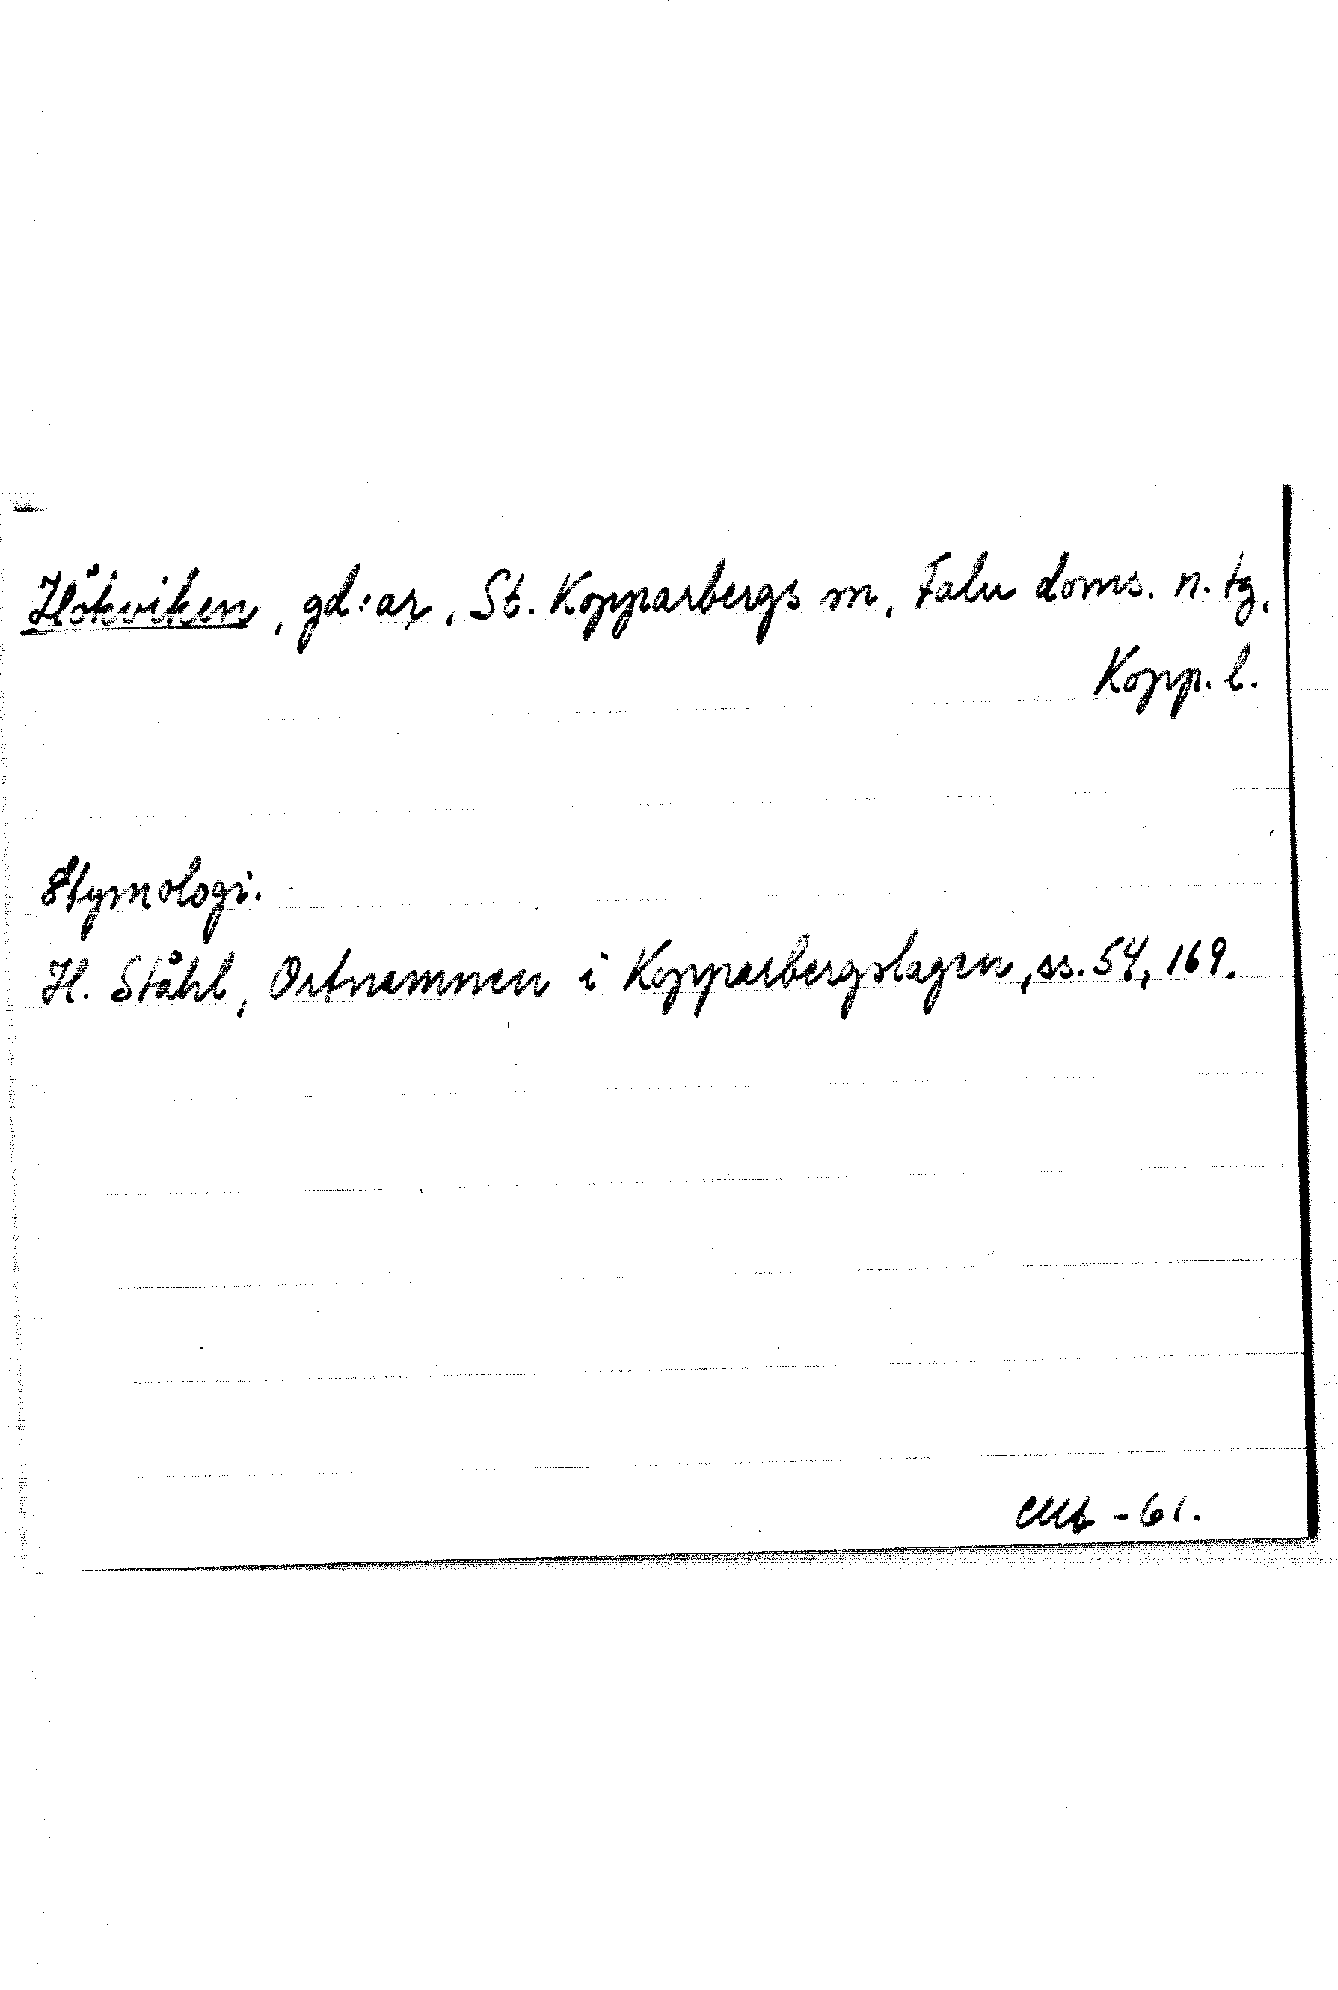 Hökviken, gd:ar, St. Kopparbergs sn, Falu doms. n. tg,
Kopp. l.
Etymologi.
H. Ståhl, Ortnamnen i Kopparbergslagen, ss. 54, 169.
-61.